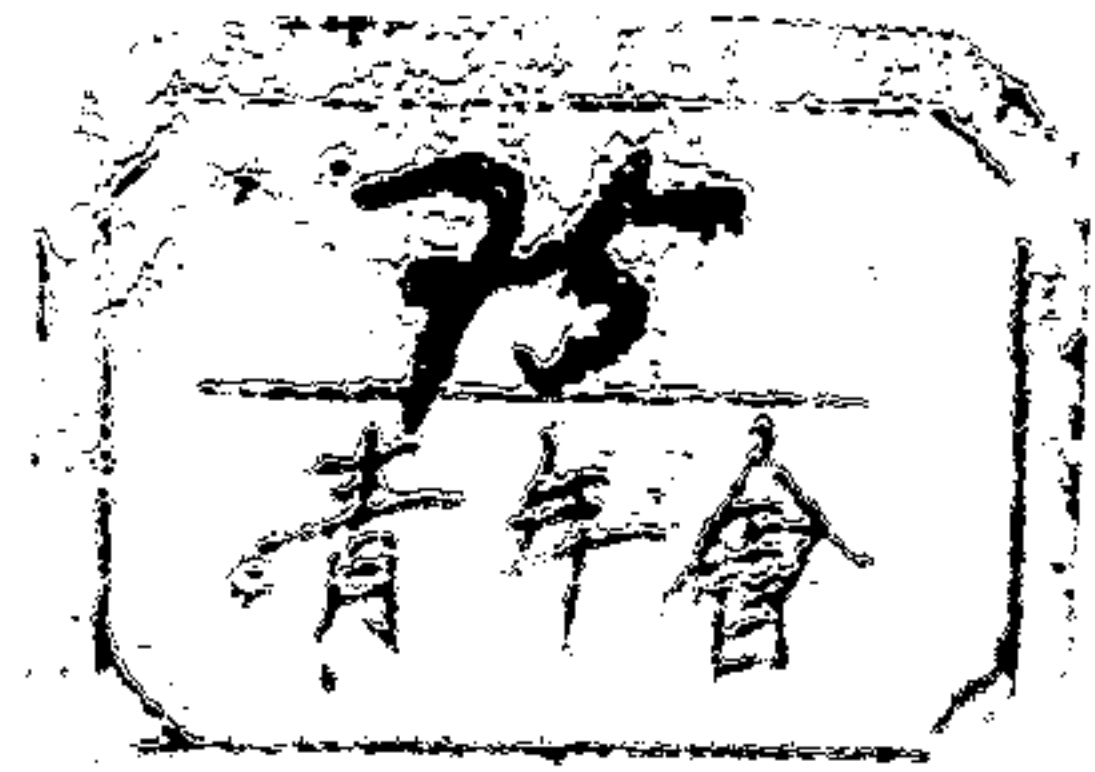 75
青年會